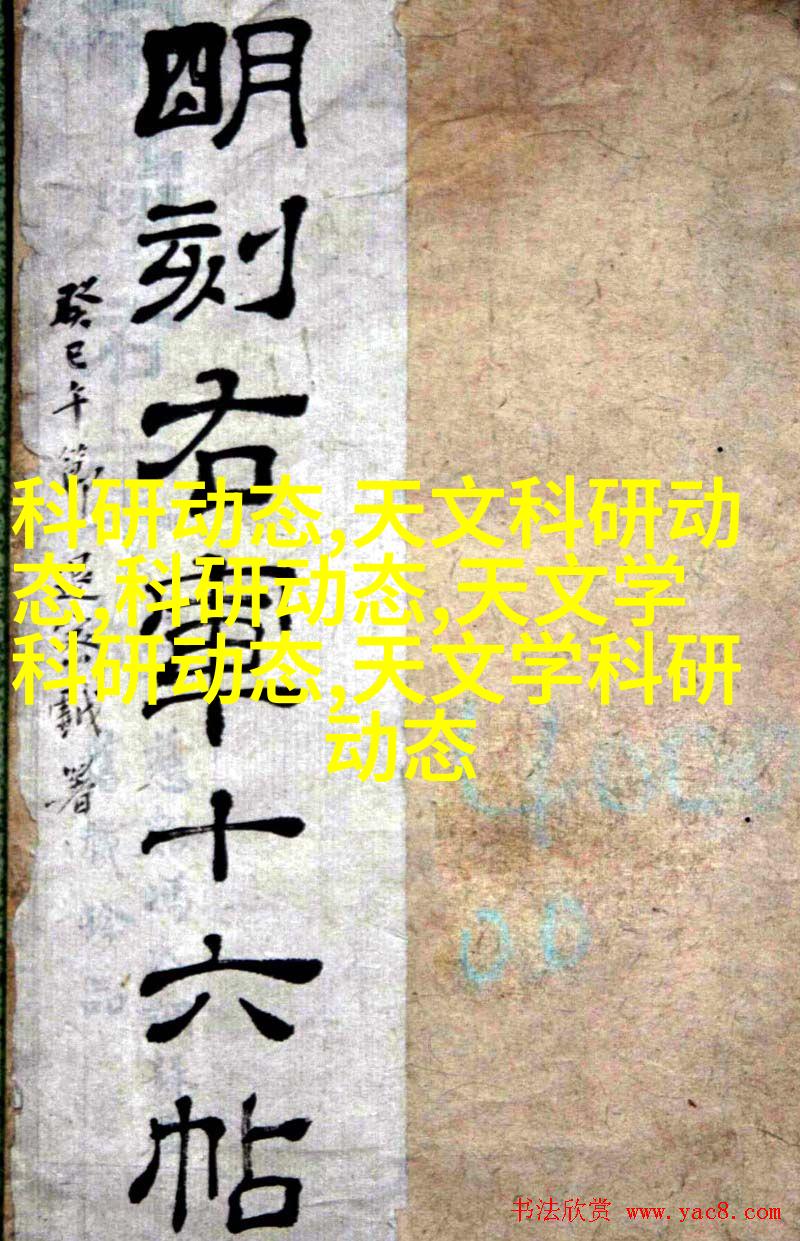 明刻右軍十六帖
癸巳午節
署
科研动态,天文科研动
态,科研动态,天文学
科研动态,天文学科研
动态
00
书法欣赏 www.yac8.com